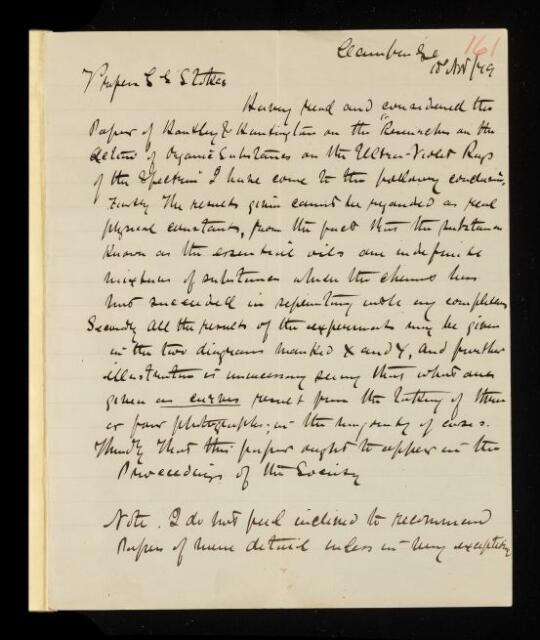 161
Cambridge
18 Nov/79
Professor G G Stokes
Having read and considered the
Paper of Hartley & Huntington on the "Researches on the
Action of Organic Substances on the Ultra-Violet Rays
of the Spectrum" I have come to the following conclusions.
Firstly The results given cannot be regarded as real
physical constants, from the fact that the substances
known as the essential oils are indefinite
mixtures of substances which the chemist has
not succeeded in separating with any completeness
Secondly All the results of the experiments may be given
in the two diagrams marked X and Y, and further
illustration is unnecessary seeing that what are
given as curves result from the taking of three
or four photographs in the majority of cases.
Thirdly That this paper ought to appear in the
Proceedings of the Society
Note. I do not feel inclined to recommend
Papers of mere detail unless in very exceptional